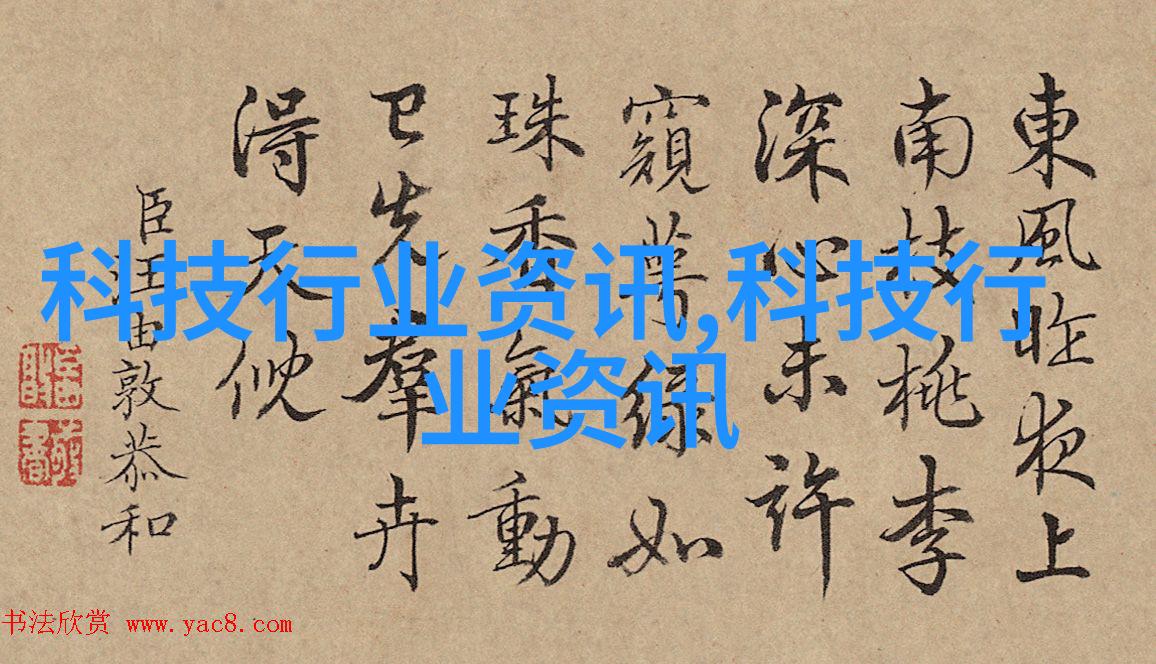 東風昨夜上
南枝桃李
深心未許
窺萼綠如
珠香氣動
已先羣卉
得天
臣汪由敦恭和
科技行业资讯,科技行
业资讯
书法欣赏 www.yac8.com